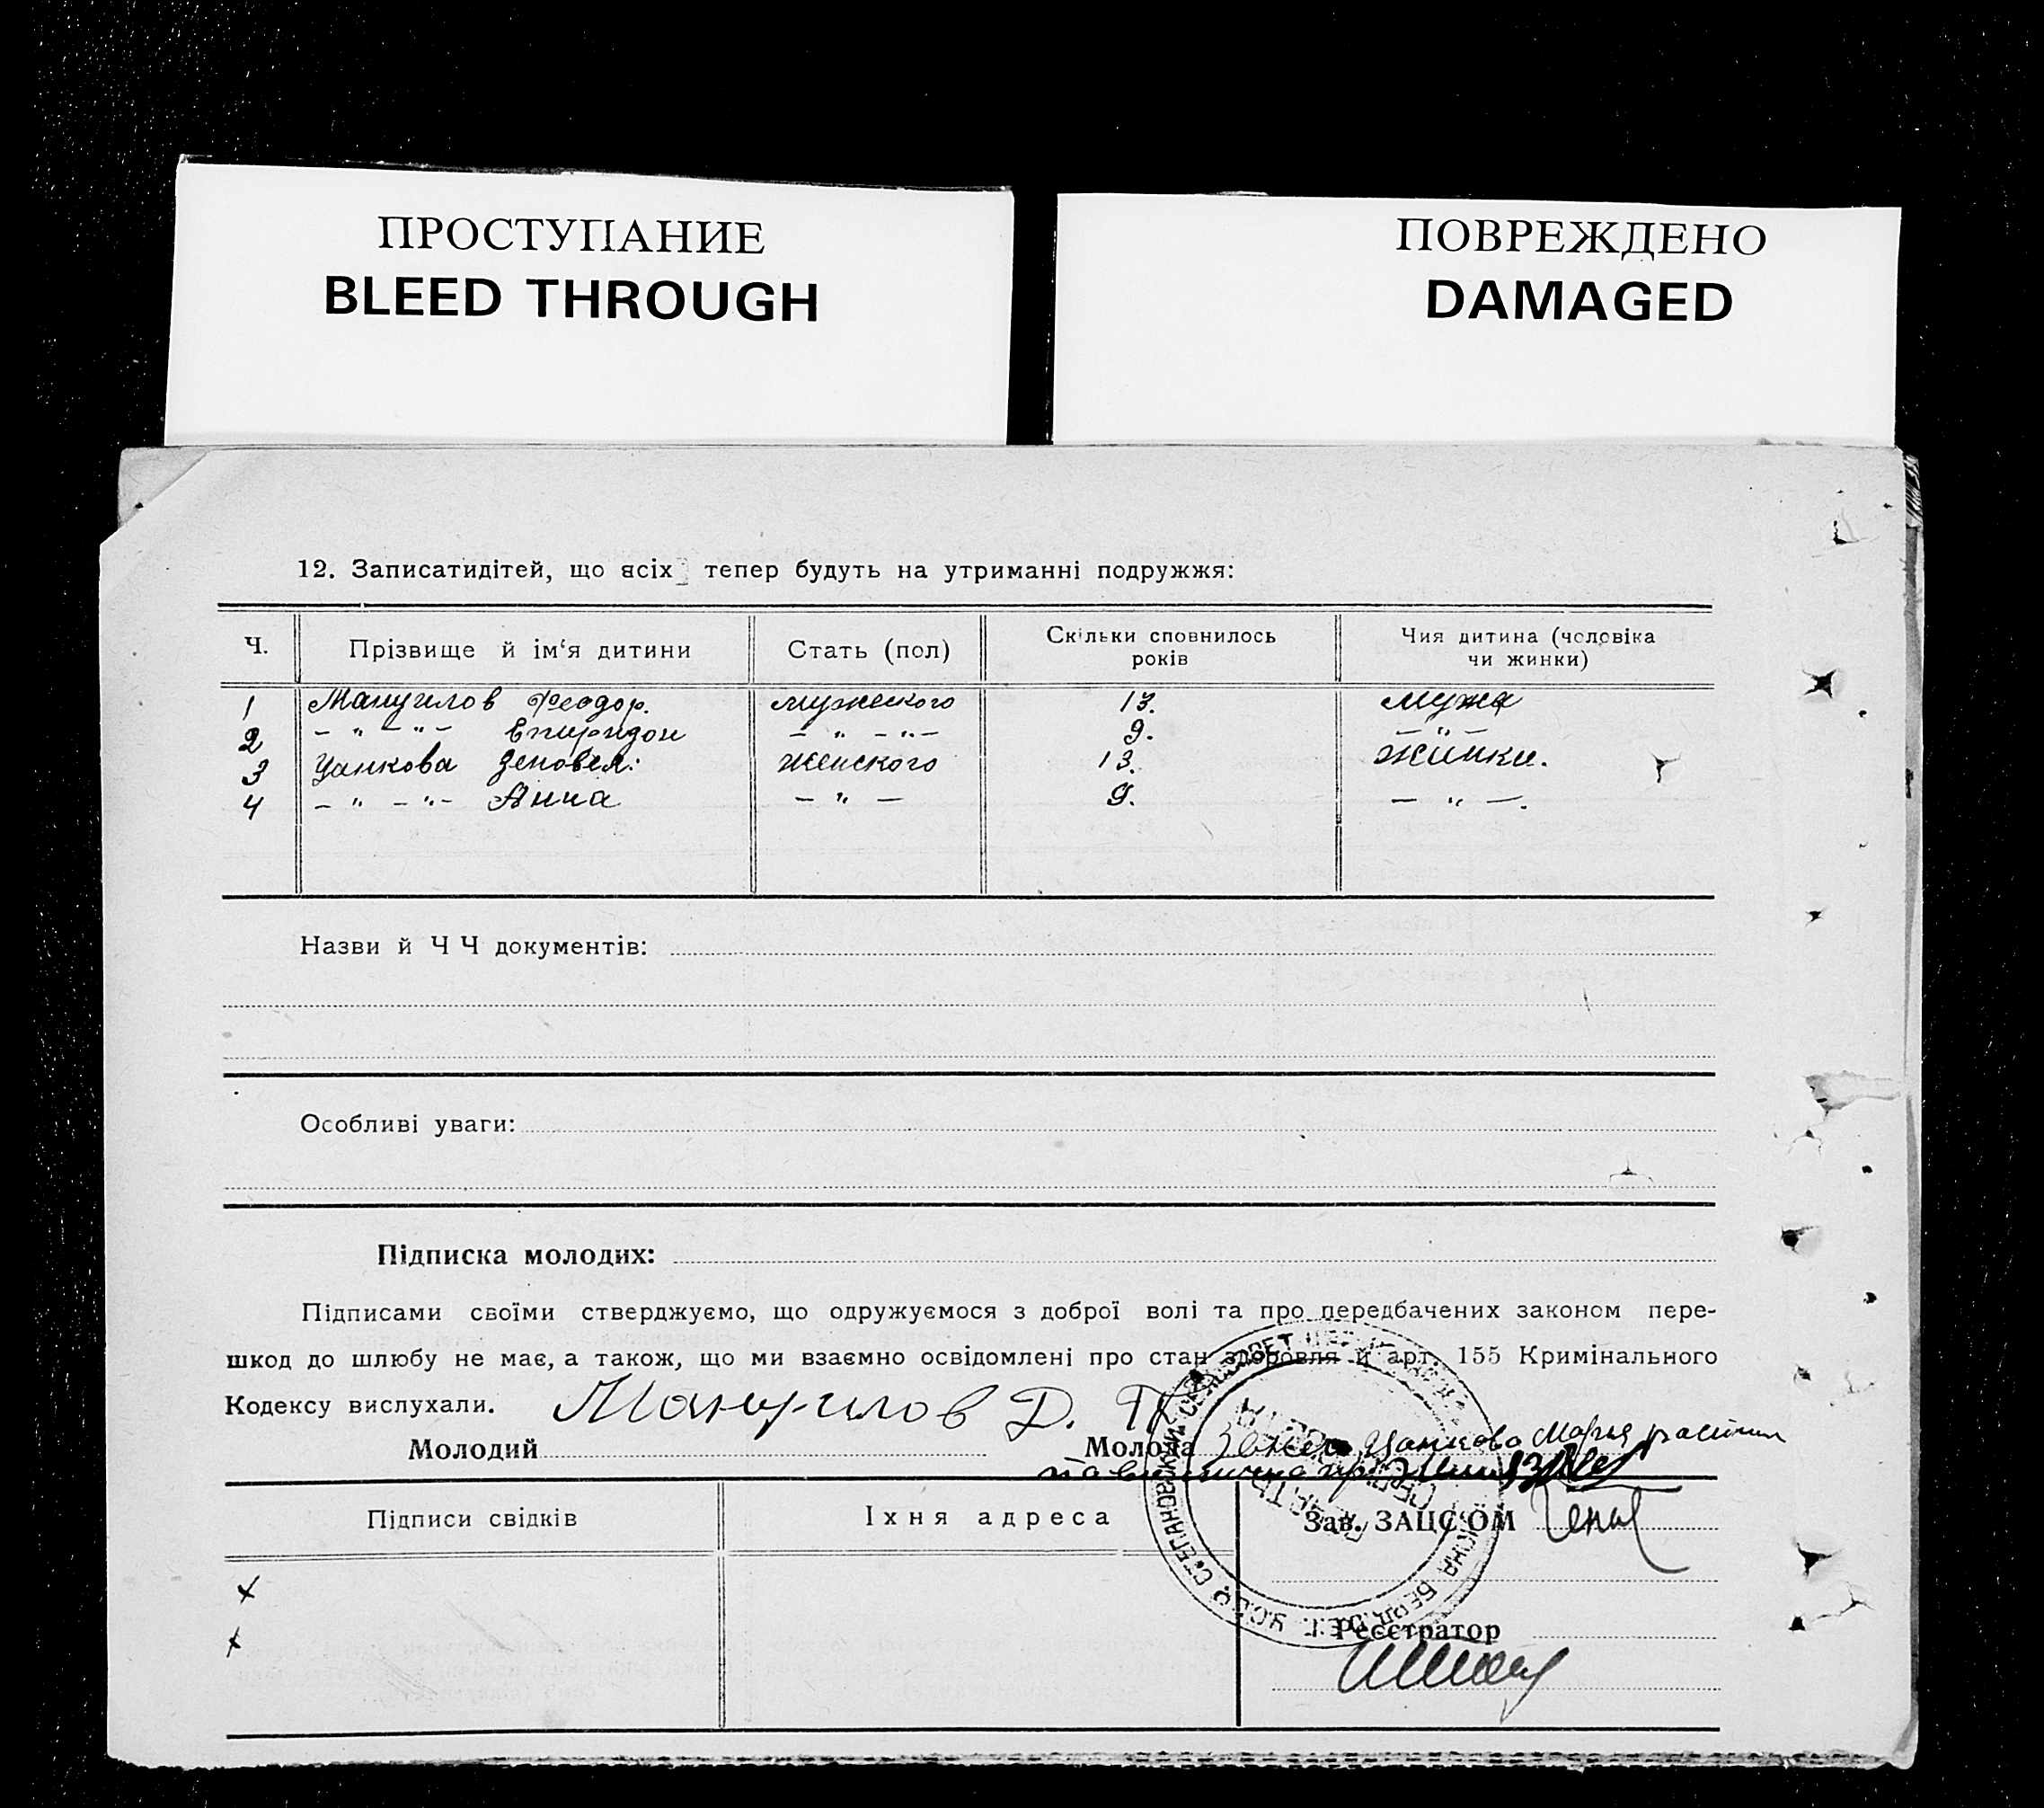 ПРОСТУПАНИЕ
BLEED THROUGH
ПОВРЕЖДЕНО
DAMAGED
12. Записатидітей, що всіх тепер будуть на утриманні подружжя:
Ч. Прізвище й ім‘я дитини Стать (пол) Скільки сповнилось років Чия дитина (чоловіка чи жинки)
1 Мануилов Феодор. мужеского 13. мужа
2 – " – " – Спиридон – " – " – 9. – " –
3 Цанкова Зеновея: Женского 13. Жинки.
4 – " – " – Анна – " – 9. – " –.
Назви й Ч Ч документів:
Особливі уваги:
Підписка молодих:
Підписами своїми стверджуємо, що одружуємося з доброї волі та про передбачених законом пере-
шкод до шлюбу не має, а також, що ми взаємно освідомлені про стан здоровля й арт. 155 Кримінального
Кодексу вислухали. Мануилов Д. П
Молодий Молода Цанкова Мария
Підписи свідків Їхня адреса Зав. ЗАЦС‘ОМ
Реєстратор